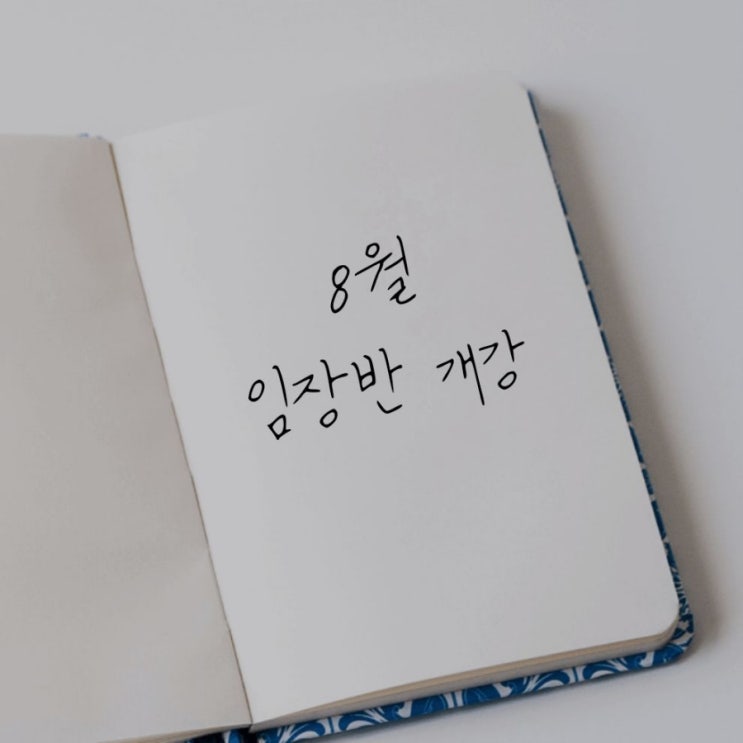 8월
임장반 개강